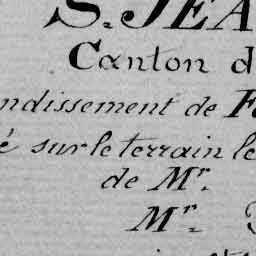 S. JEA
Canton d
ndissement de F
é sur le terrain le
de Mr.
Mr.